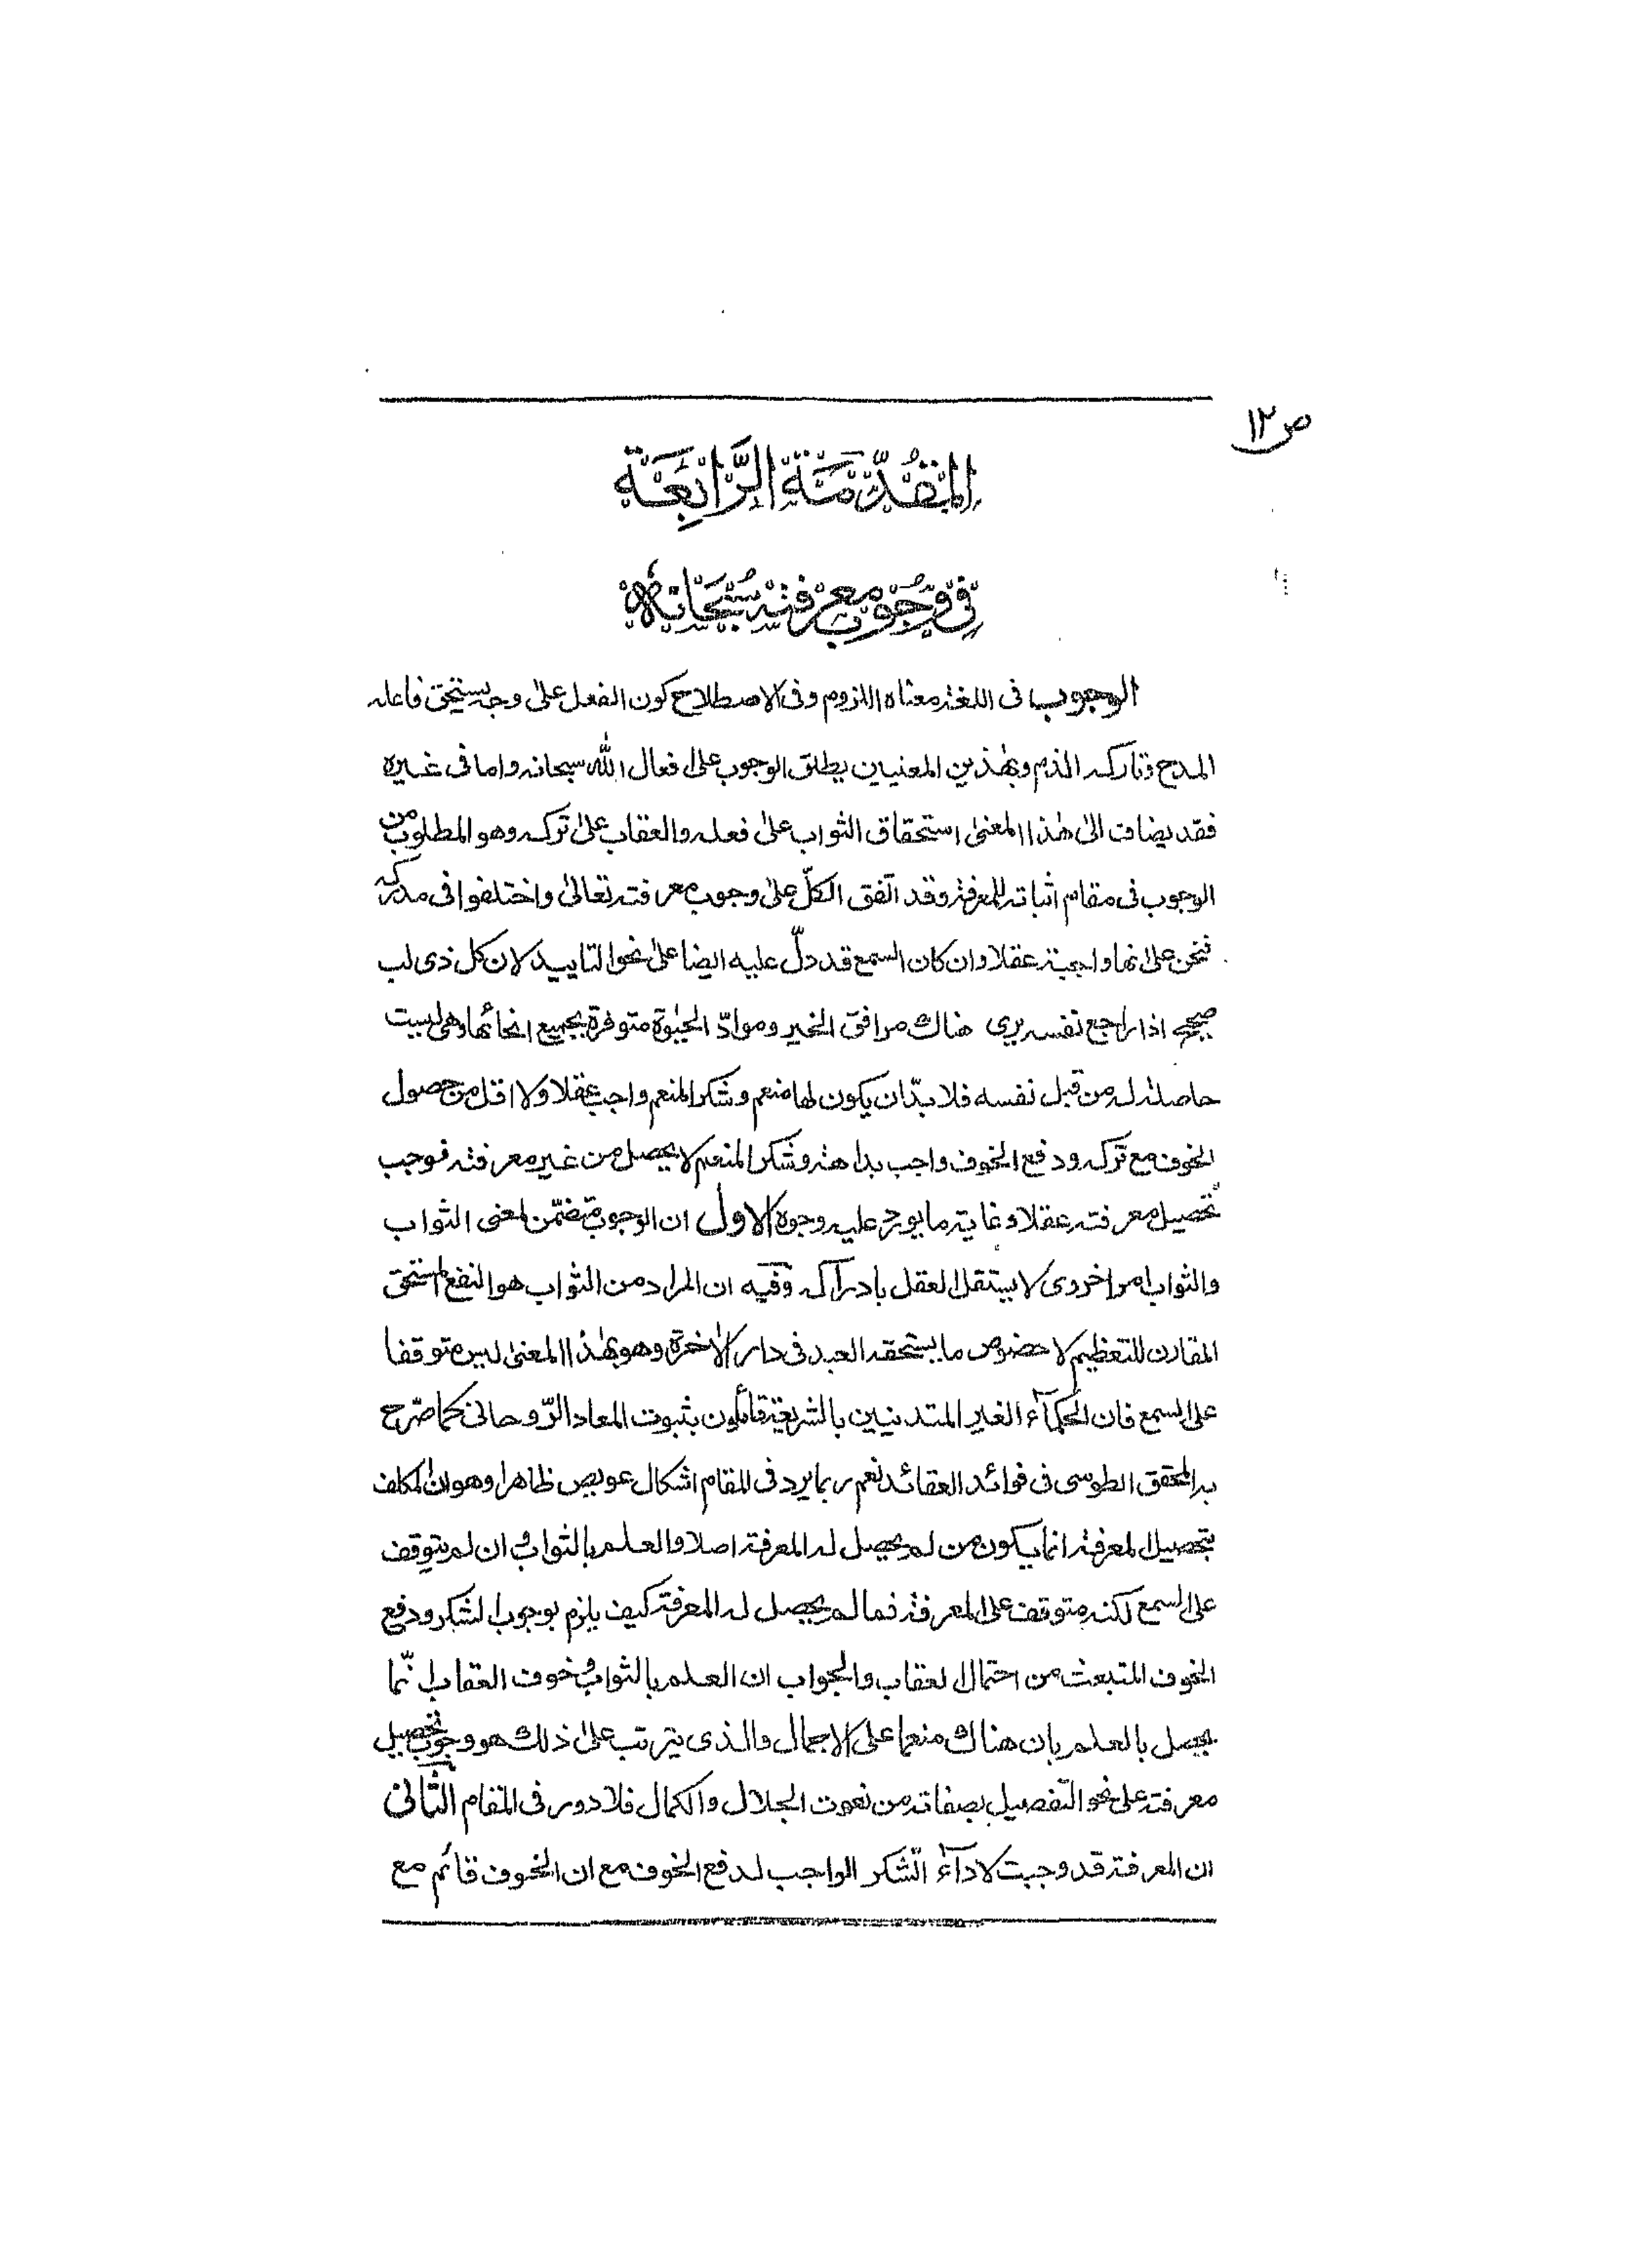 ص ١٢
المُقَدِّمَة الرَّابِعَة
فِي وُجُوبِ مَعْرِفَتِه سُبْحَانَهُ
الوجوب فى اللغة معناه اللزوم وفى الاصطلاح كون الفعل على وجه يستحق فاعله
المدح وتاركه الذم وبهٰذين المعنيين يطلق الوجوب على افعال الله سبحانه واما فى غيره
فقد يضاف الى هٰذا المعنى استحقاق الثواب على فعله والعقاب على تركه وهو المطلوب من
الوجوب فى مقام اثباته للمعرفة وقد اتّفق الكلّ على وجوب معرفته تعالى واختلفوا فى مدركه
فنحن على انها واجبة عقلا وان كان السمع قد دلّ عليه ايضا على نحو التاييد لان كل ذى لب
صحيح اذا راجع نفسه يرى هناك مرافق الخير وموادّ الحيٰوة متوفرة بجميع انحائها وهى ليست
حاصلة له من قبل نفسه فلا بدّ ان يكون لها منعم وشكر المنعم واجب عقلا ولا اقل من حصول
الخوف مع تركه ودفع الخوف واجب بداهة وشكر المنعم لا يحصل من غير معرفته فوجب
تحصيل معرفته عقلا وغاية ما يورد عليه وجوه الاول ان الوجوب متضمّن لمعنى الثواب
والثواب امر اخروى لا يستقل العقل بادراكه وفيه ان المراد من الثواب هو النفع المستحق
المقارن للتعظيم لا خصوص ما يستحقه العبد فى دار الاٰخرة وهو بهٰذا المعنى ليس متوقفا
على السمع فان الحكمآء الغير المتدينين بالشريعة قائلون بثبوت المعاد الرّوحانى كما صّرح
به المحقق الطوسى فى فوائد العقائد نعم ربما يرد فى المقام اشكال عويص ظاهرا وهو ان المكلف
بتحصيل المعرفة انما يكون من لم يحصل له المعرفة اصلا والعلم بالثواب وان لم يتوقف
على السمع لكنه متوقف على المعرفة فما لم يحصل له المعرفة كيف يلزم بوجوب الشكر ودفع
الخوف المتبعث من احتمال العقاب والجواب ان العلم بالثواب وخوف العقاب انّما
يحصل بالعلم بان هناك منعما على الاجمال والذى يترتب على ذلك هو وجوب تحصيل
معرفته على نحو التّفصيل بصفاته من نعوت الجلال والكمال فلا دور فى المقام الثانى
ان المعرفة قد وجبت لادآء الّشكر الواجب لدفع الخوف مع ان الخوف قائم مع